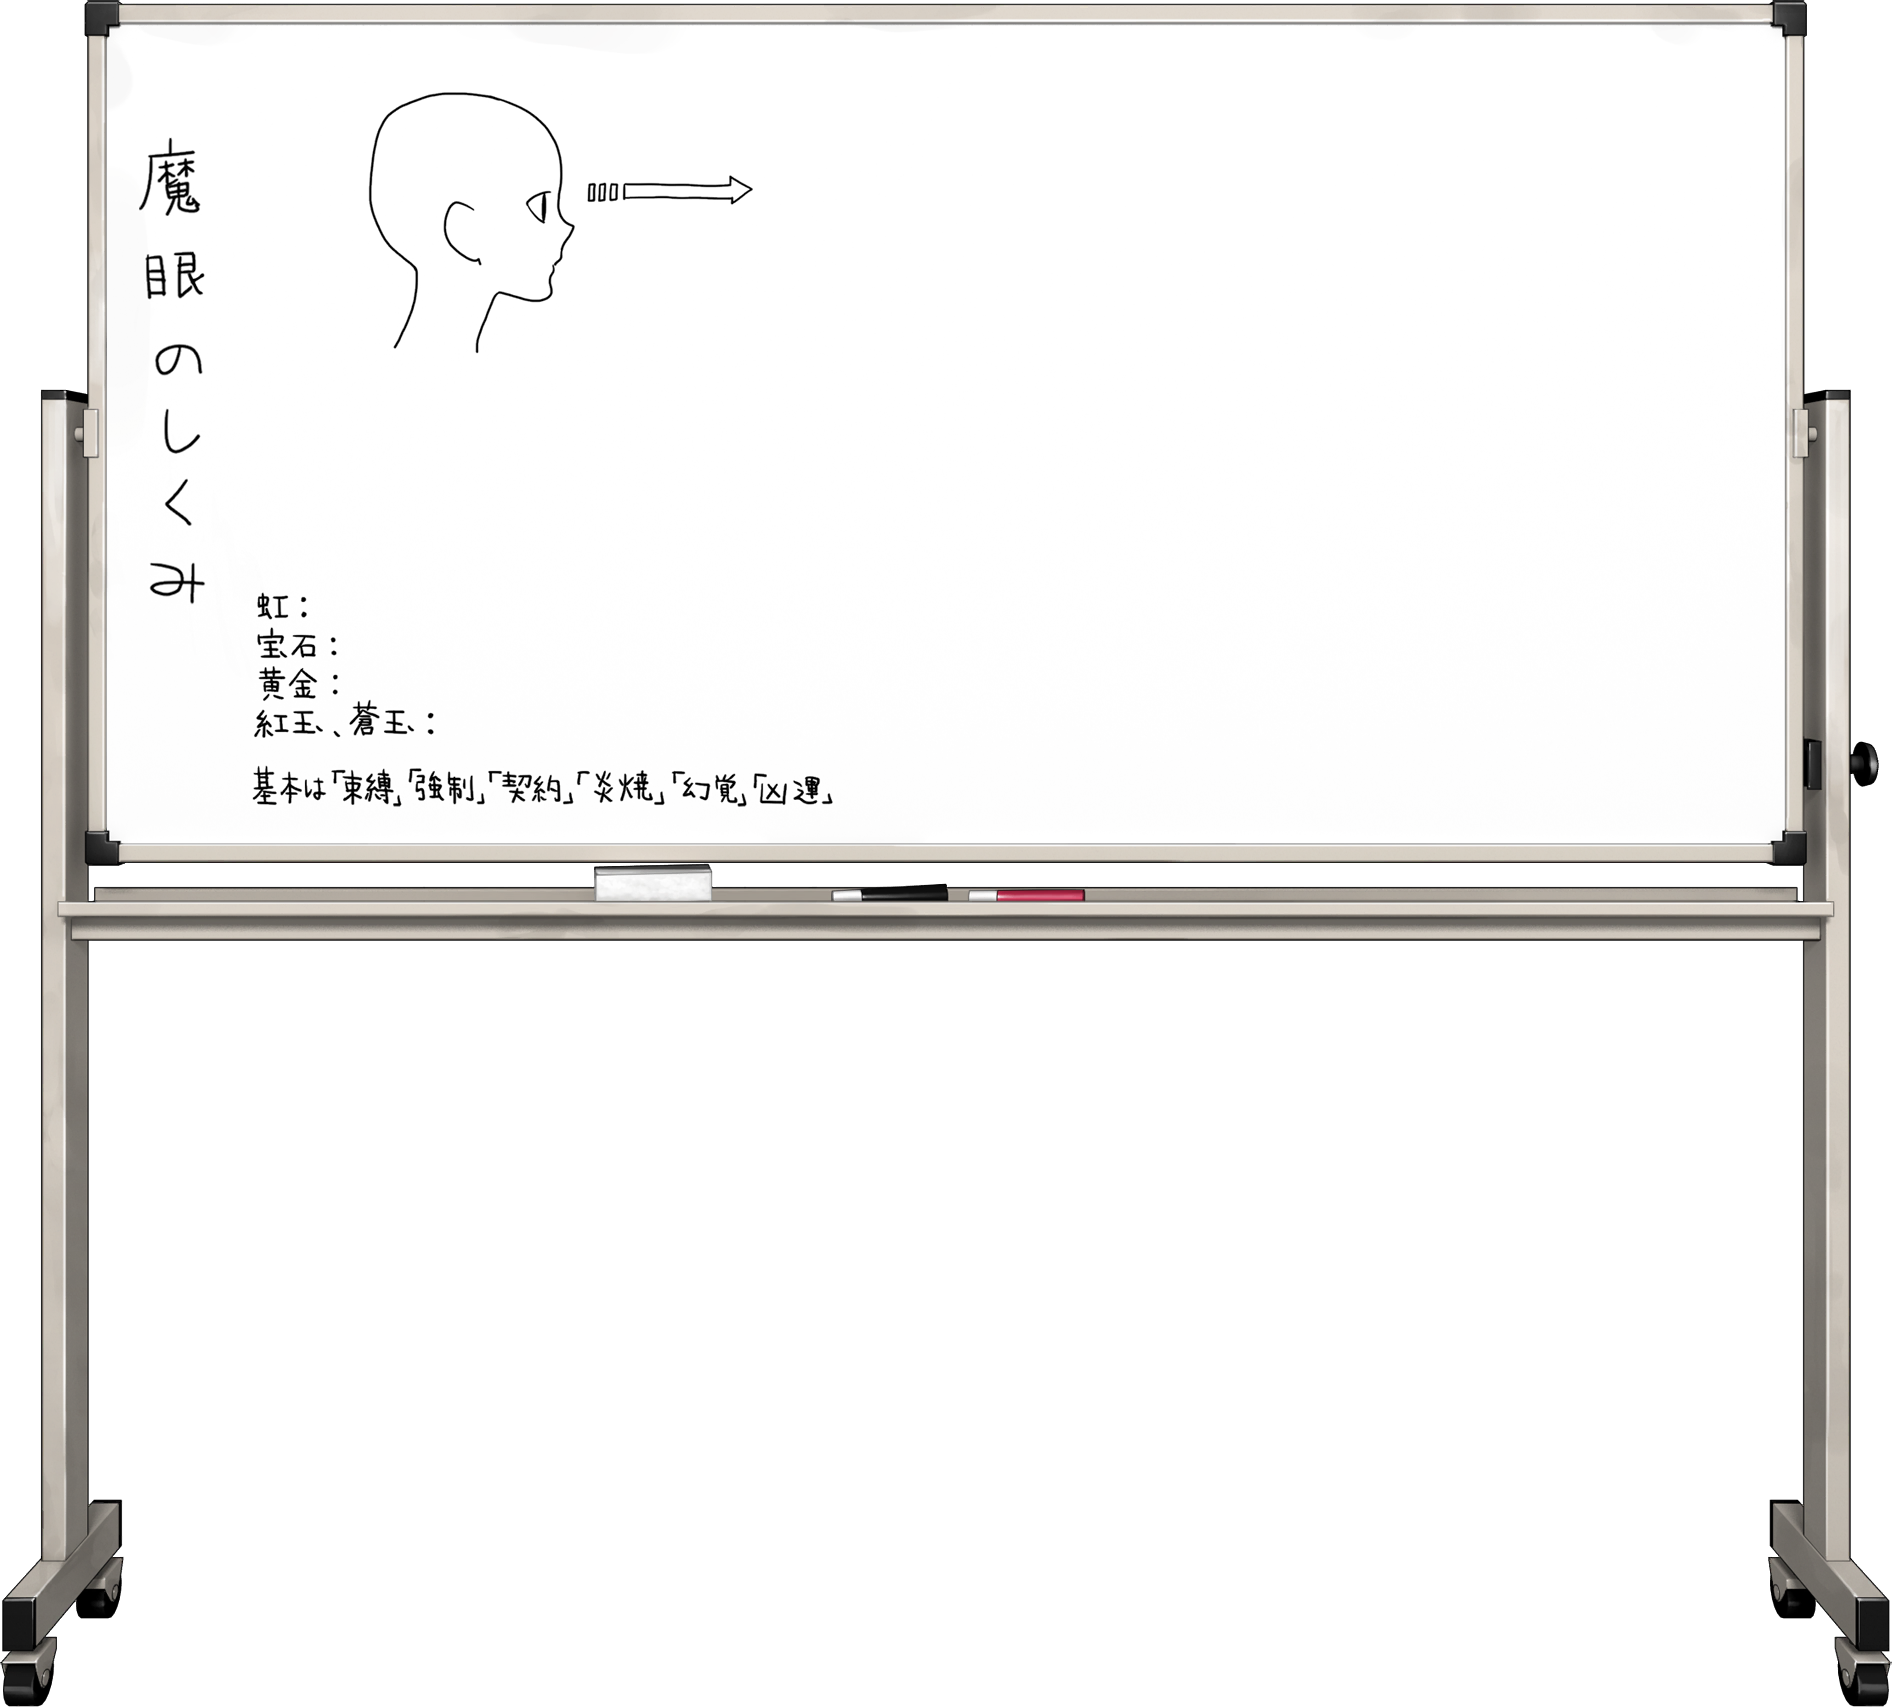 魔眼のしくみ
虹：
宝石：
黄金：
紅玉、蒼玉：
基本は「束縛」「強制」「契約」「炎焼」「幻覚」「凶運」